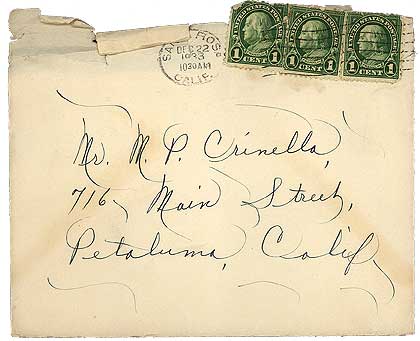 SANTA ROSA
DEC 22
1933
1030 AM
CALIF.
UNITED STATES POSTAGE
1 CENT 1
UNITED STATES POSTAGE
1 CENT 1
UNITED STATES POSTAGE
1 CENT 1
Mr. M. P. Crinella,
716 Main Street,
Petaluma, Calif.